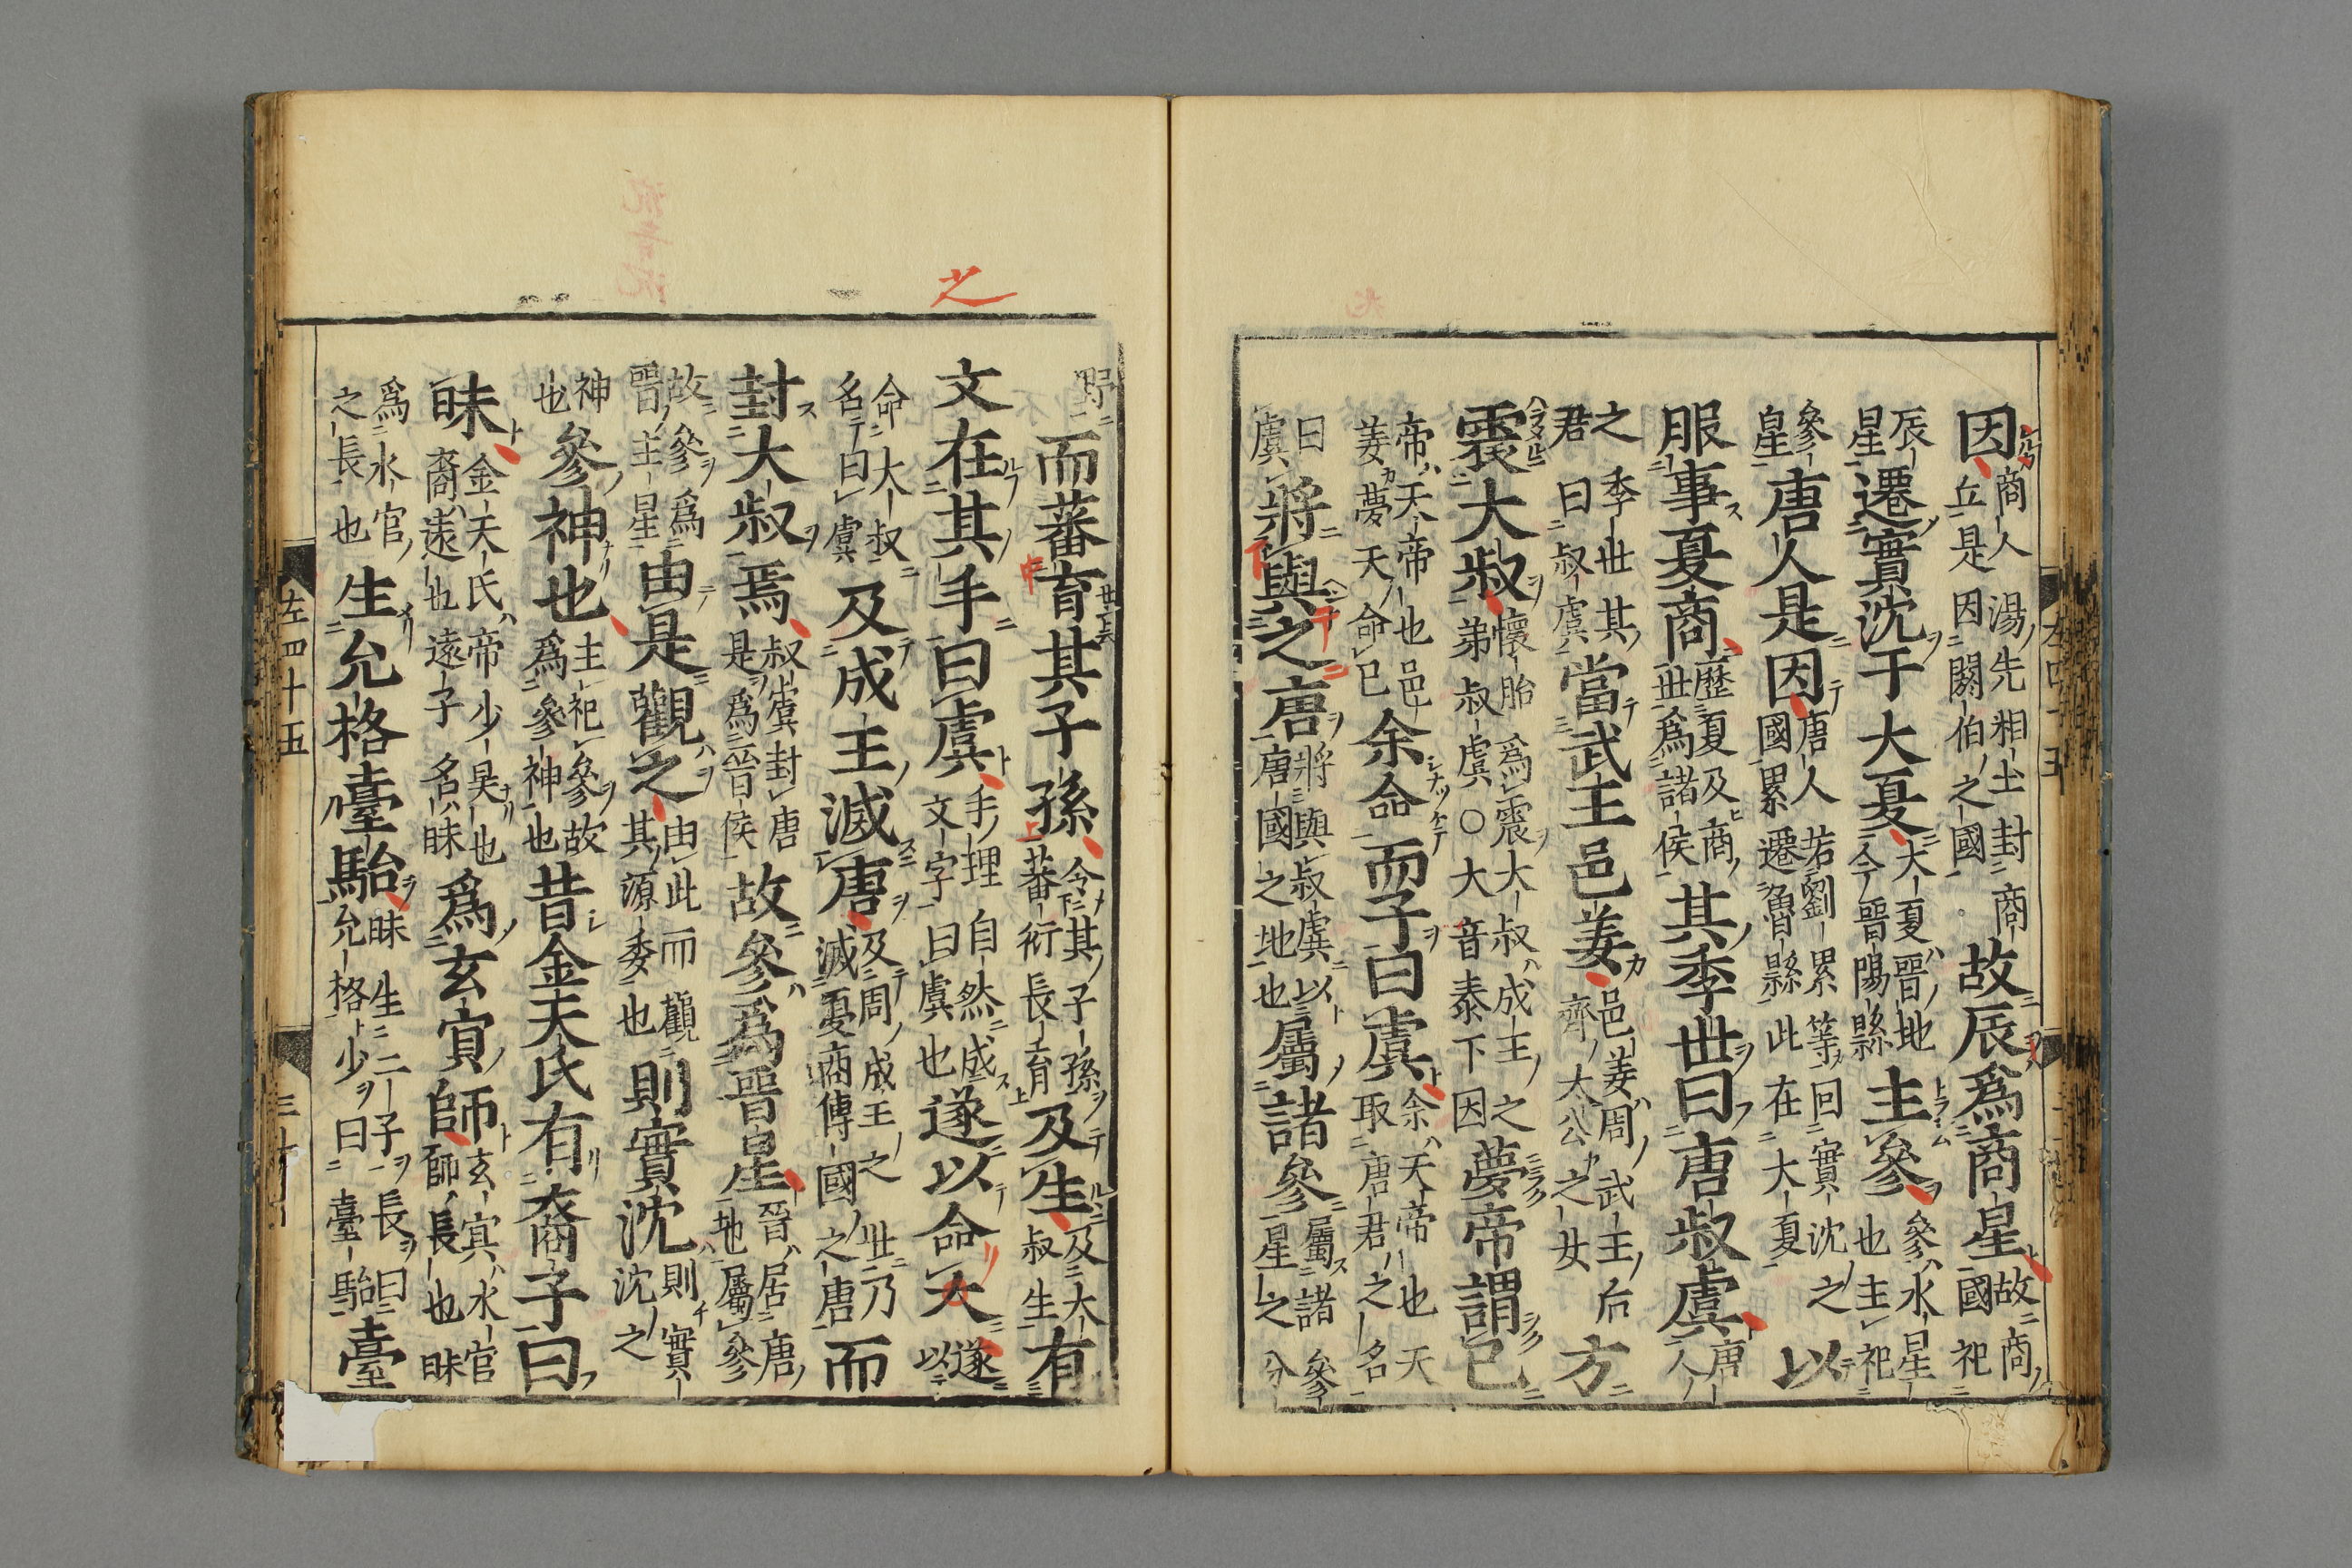 因商人湯先相土封商丘是因閼伯之國故辰爲商星故國商祀
辰星遷實沈于大夏大夏晉地今晉陽縣主參參水星也主祀
參星唐人是因唐人若劉累等國累遷魯縣此回實沈之在大夏以
服事夏商歷夏及商世爲諸侯其季世曰唐叔虞唐人
之季世其君曰叔虞當武王邑姜邑姜周武王后齊太公之女方
震大叔懷胎爲震大叔成王之弟叔虞○大音泰下因夢帝謂己
帝天帝也邑姜夢天命己余命而子曰虞余天帝也天取唐君之名
曰虞將與之唐將與叔虞以唐國之地也屬諸參屬諸參星之分
野而蕃育其子孫令其子孫蕃衍長育及生及大叔生有
文在其手曰虞手理自然成文字曰虞也遂以命大遂以
命大叔名曰虞及成王滅唐及周成王之世乃滅夏商傳國之唐而
封大叔焉叔虞封唐是爲晉侯故參爲晉星晉居唐地屬參
故參爲晉主星由是觀之由此而觀其源委也則實沈則實沈之
神也參神也主祀參故爲參神也昔金天氏有裔子曰
昧金天氏帝少昊也裔遠也遠子名昧爲玄冥師玄冥水官師長也昧
爲水官之長也生允格臺駘昧生二子長曰允格少曰臺駘臺
左四十五